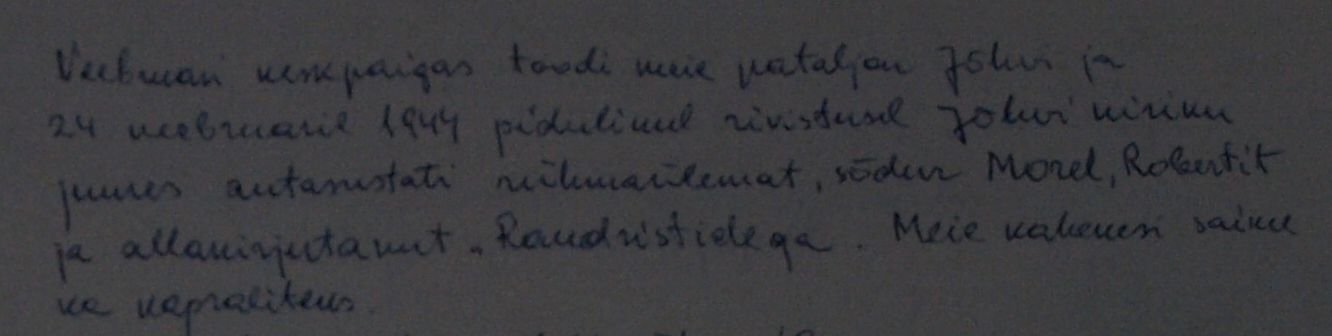 Veebruari keskpaigas toodi meie pataljon Jõhvi ja
24 veebruaril 1944 pidulikul rivistusel Jõhvi kiriku
juures autasustati rühmaülemat, sõdur Morel, Robertit
ja allakirjutanut „Raudristidega. Meie kahekesi saime
ka kapraliteks.